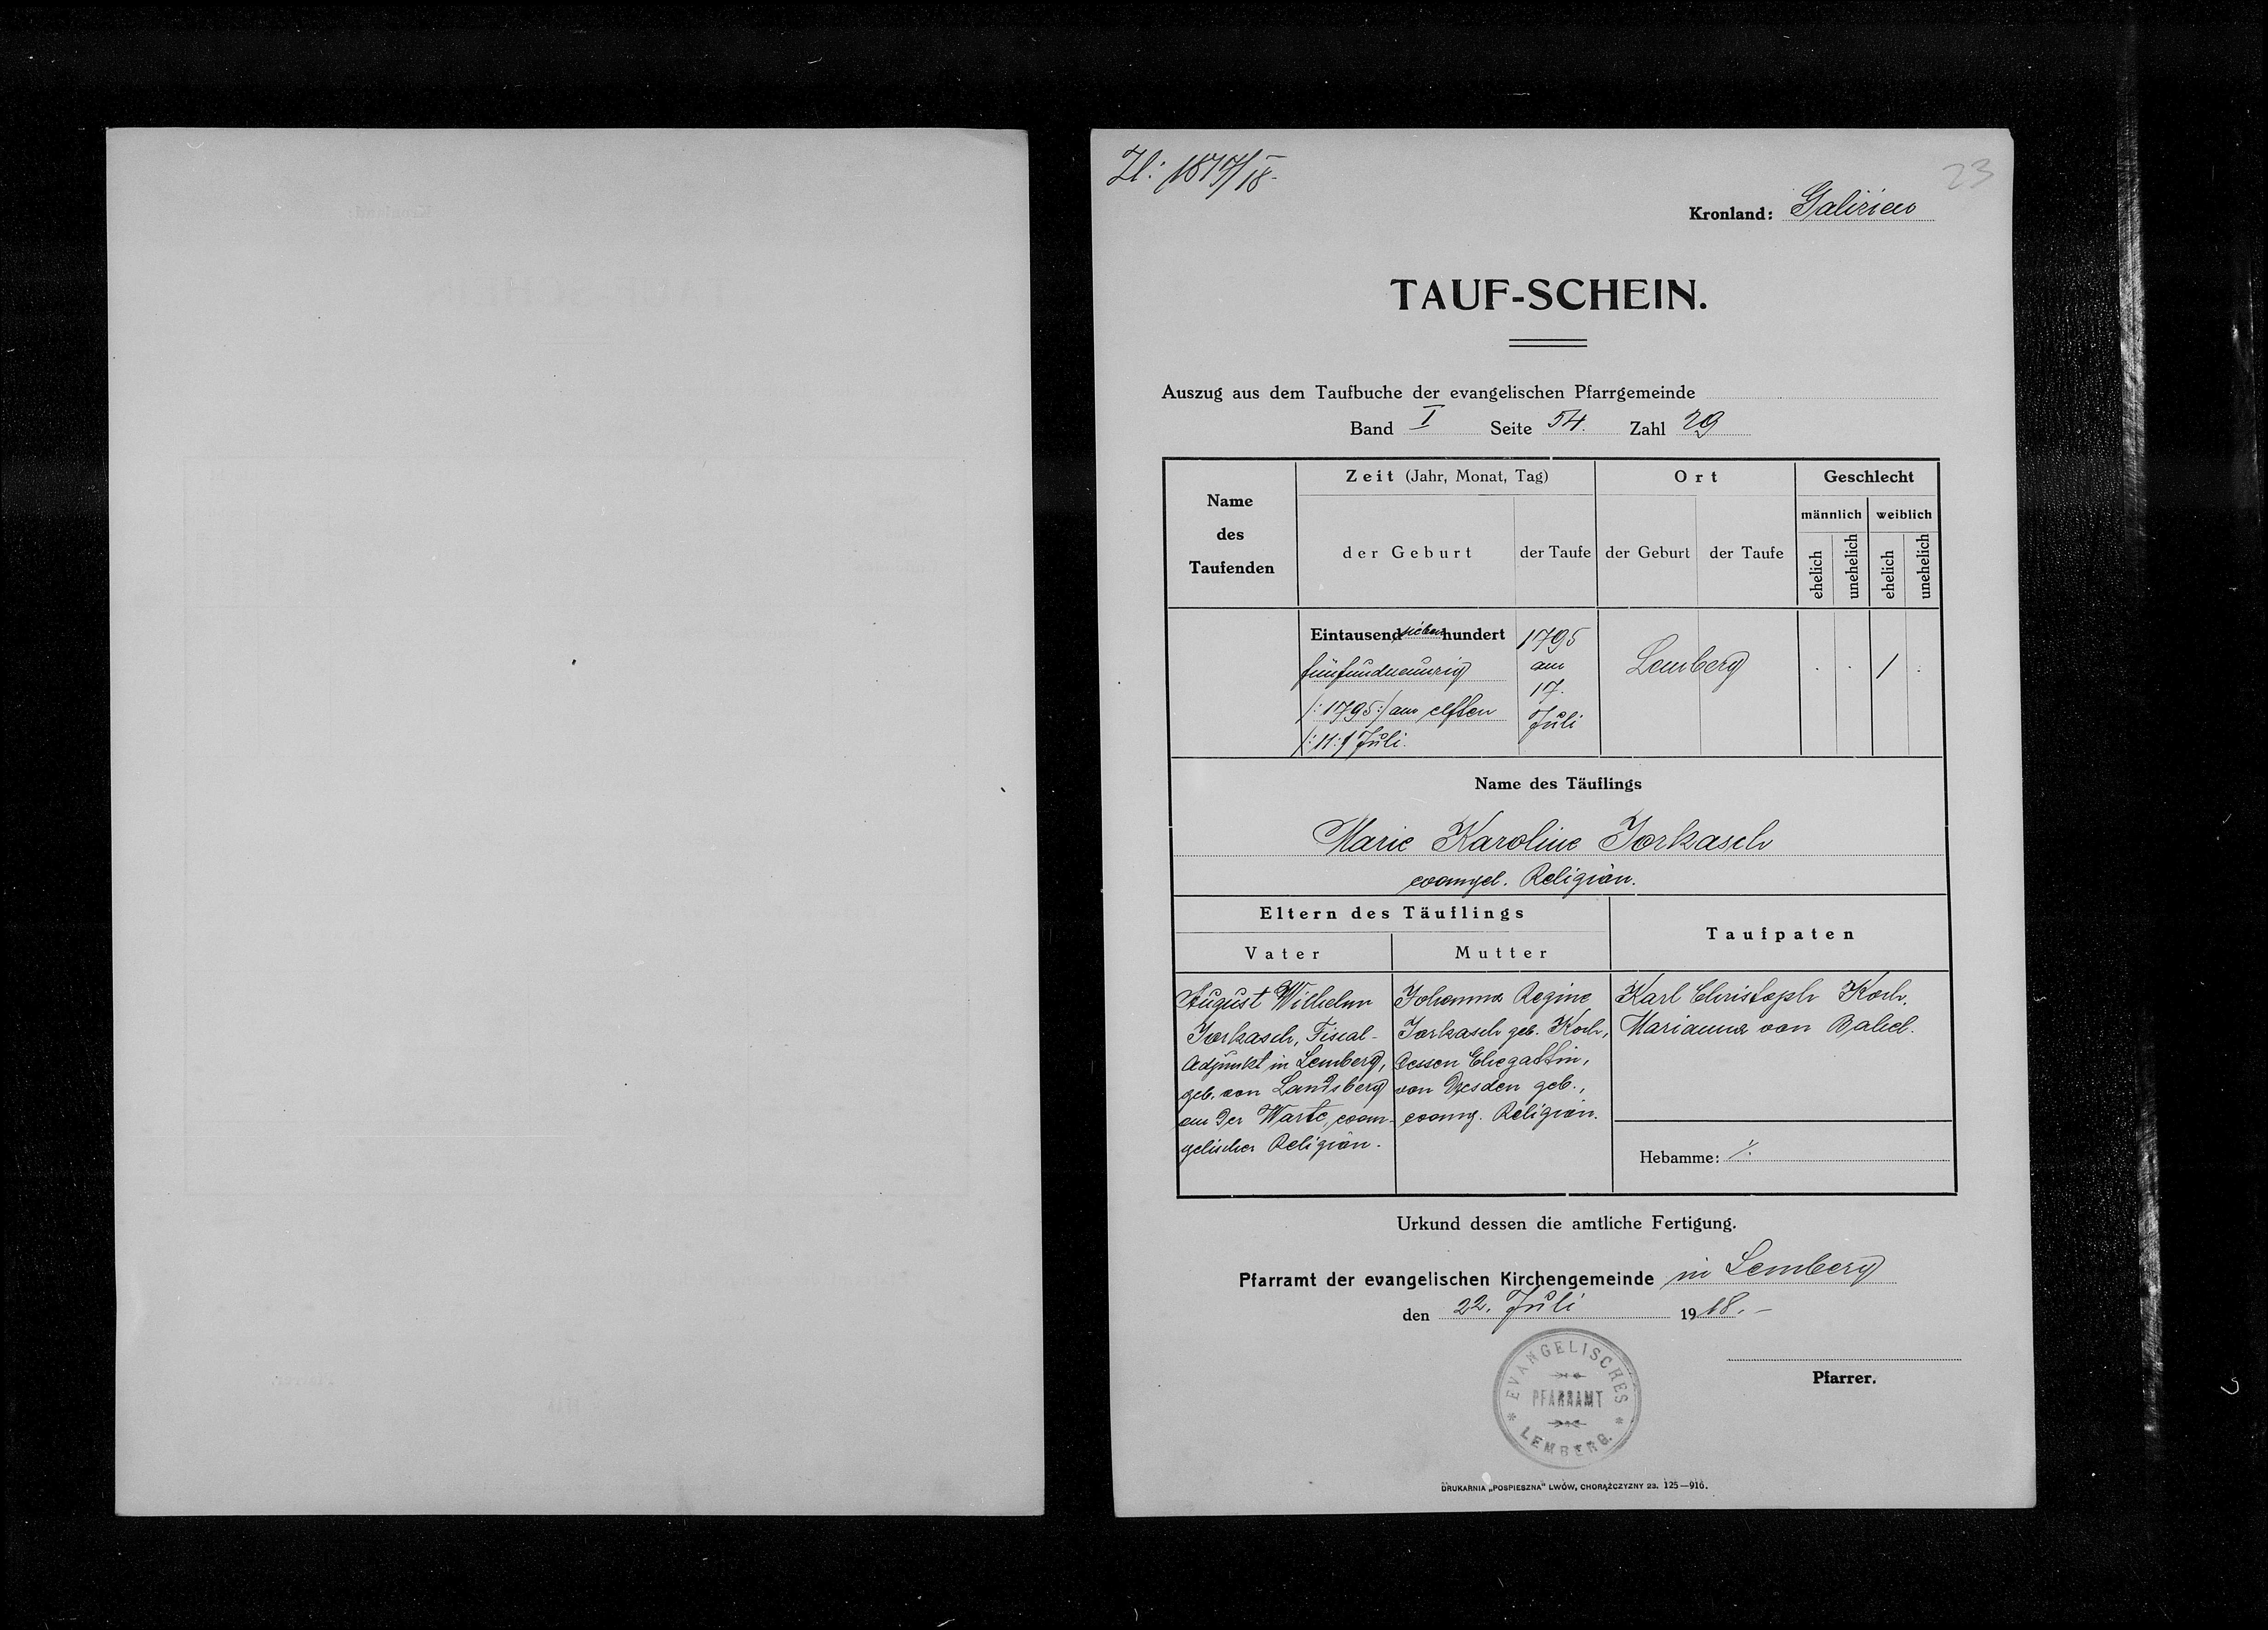 Zl: 1877/18.
23
Kronland: Galizien
TAUF-SCHEIN.
Auszug aus dem Taufbuche der evangelischen Pfarrgemeinde
Band I Seite 54. Zahl 29
Name des Taufenden
Zeit (Jahr, Monat, Tag)
der Geburt
der Taufe
Ort
der Geburt
der Taufe
Geschlecht
männlich
weiblich
ehelich
unehelich
ehelich
unehelich
Eintausend siebenhundert
fünfundneunzig
/:1795:/ am elften
/:11:/ Juli.
1795
am
17.
Juli
Lemberg
. . / .
Name des Täuflings
Marie Karoline Jorkasch
evangel. Religion.
Eltern des Täuflings
Vater
Mutter
Taufpaten
August Wilhelm
Jorkasch, Fiscal-
Adjunkt in Lemberg,
geb. von Landsberg
an der Warte, evan-
gelischer Religion.
Johanna Regine
Jorkasch geb. Koch,
dessen Ehegattin,
von Dresden geb.,
evang. Religion.
Karl Christoph Koch,
Marianna von Babel.
Hebamme: /.
Urkund dessen die amtliche Fertigung.
Pfarramt der evangelischen Kirchengemeinde in Lemberg
den 22. Juli 1918.-
EVANGELISCHES
PFARRAMT
LEMBERG.
Pfarrer.
DRUKARNIA „POSPIESZNA" LWÓW, CHORĄŻCZYZNY 23. 125—916.